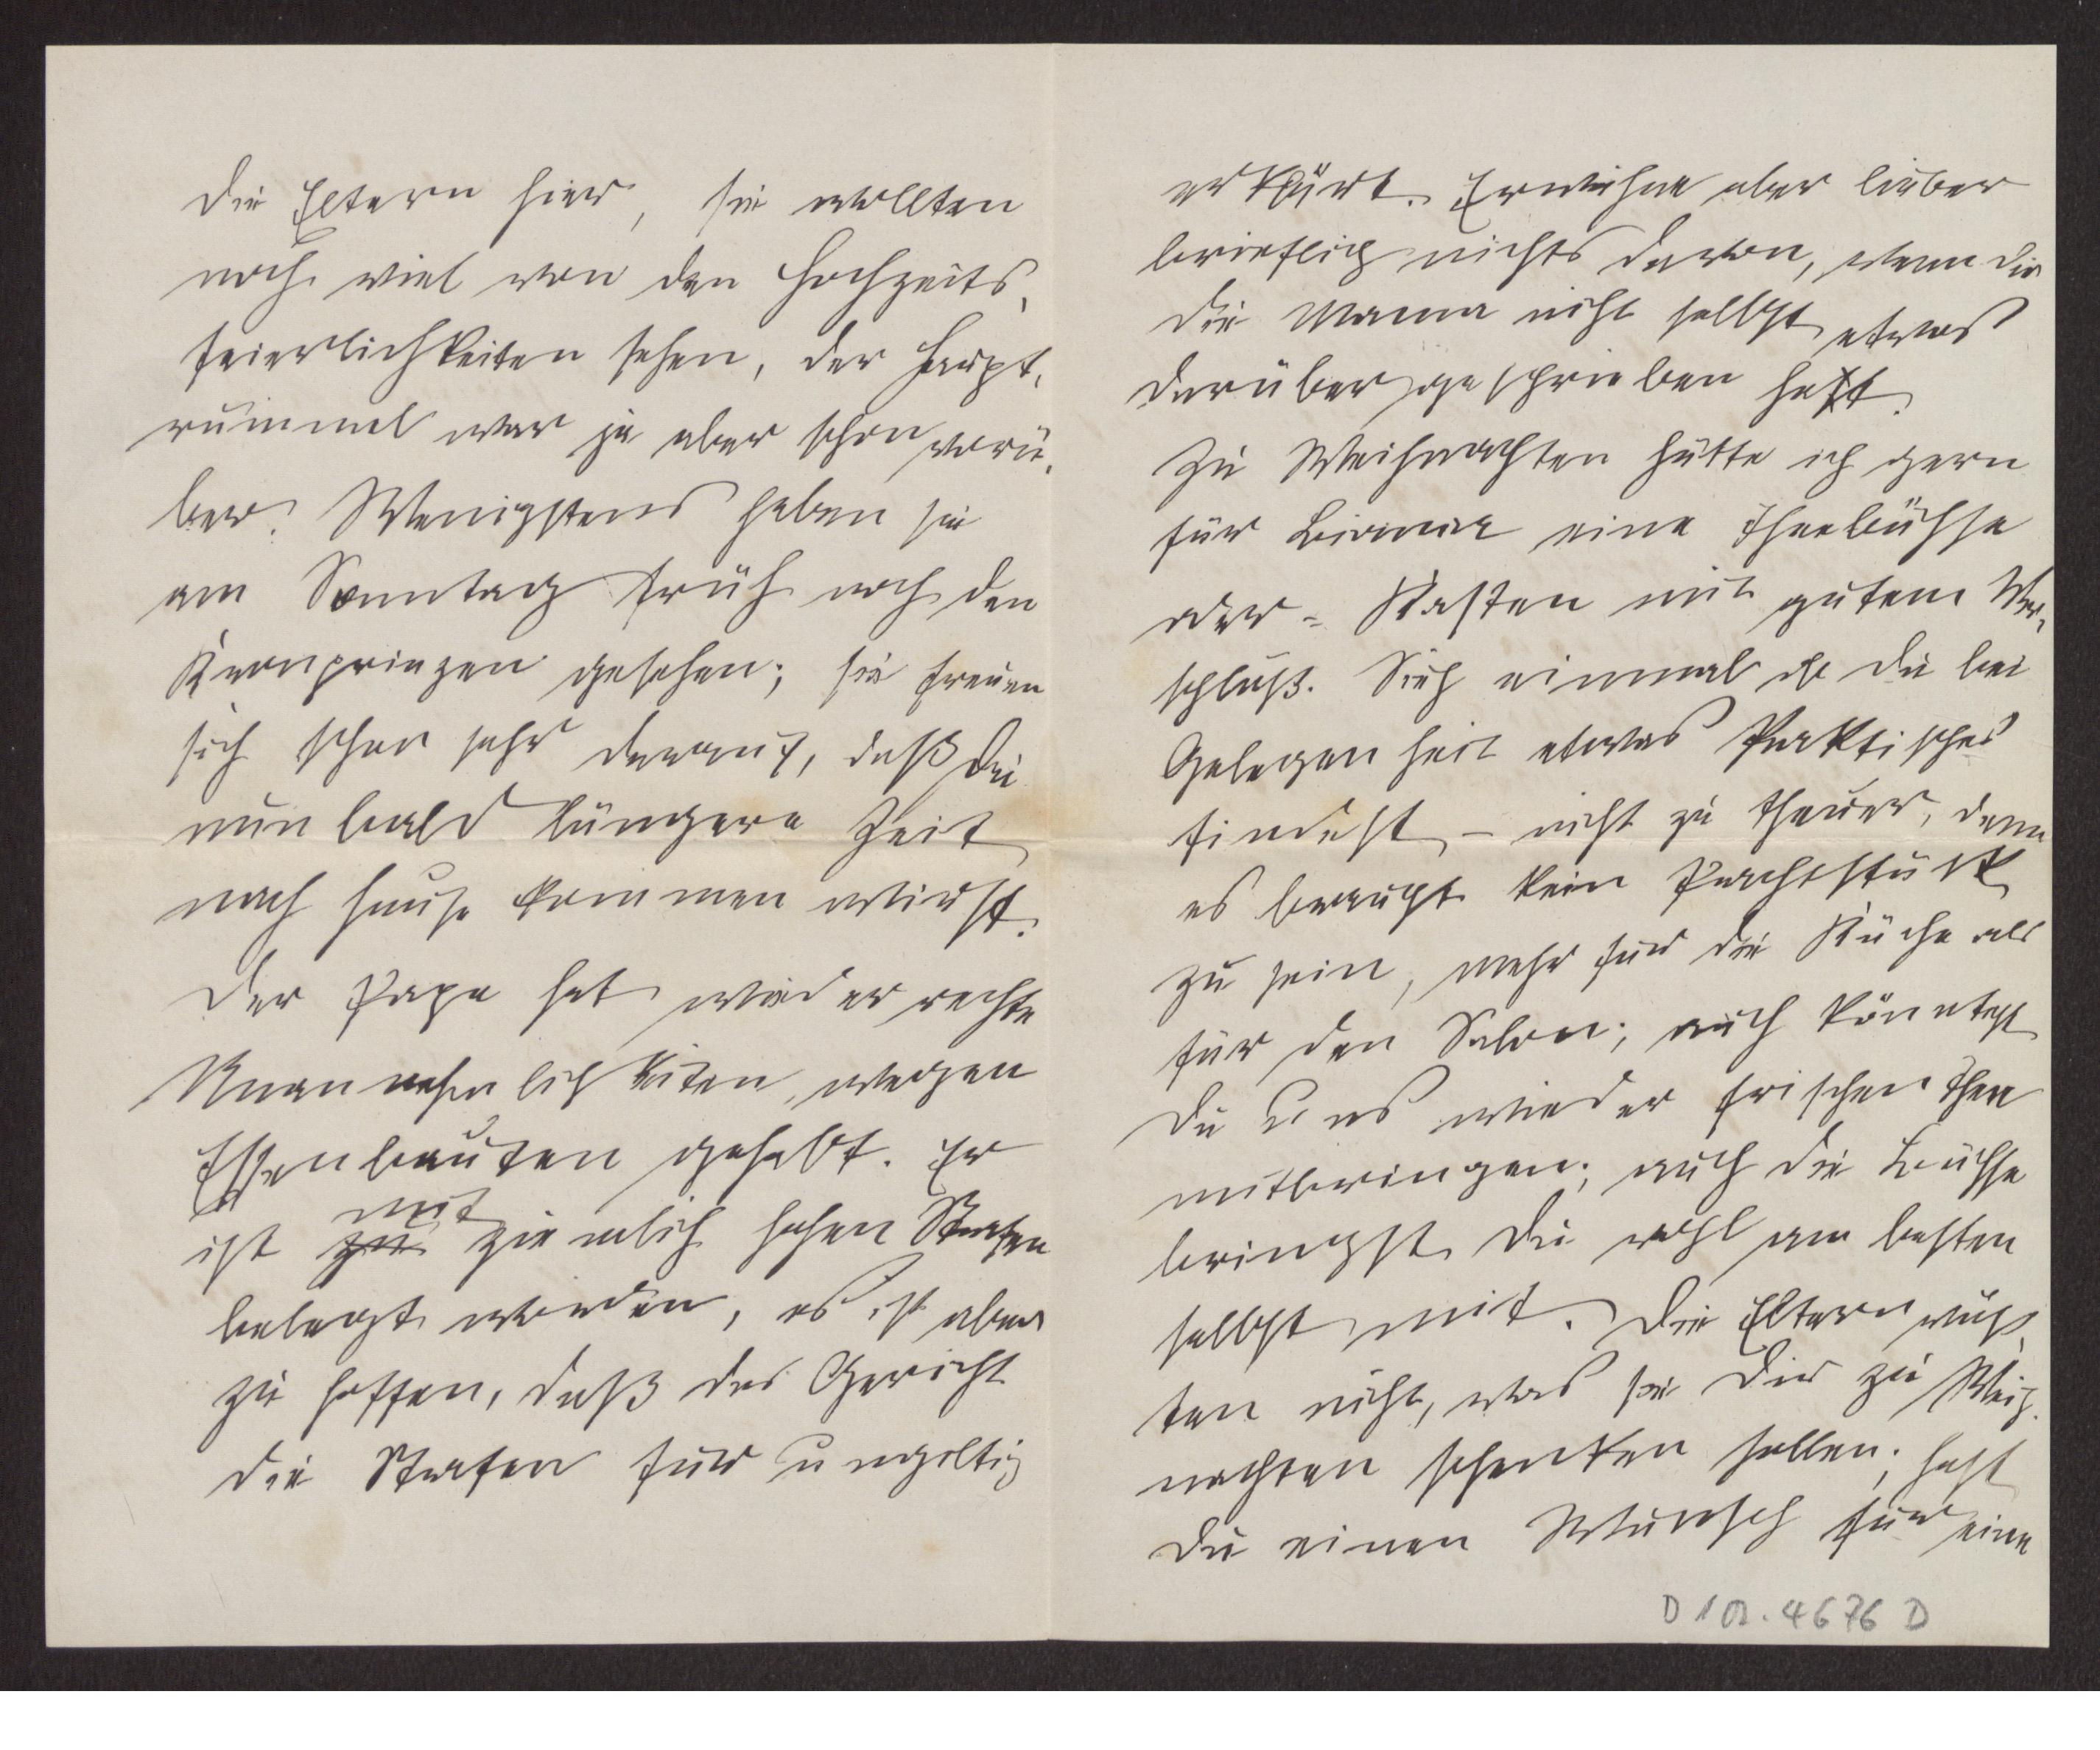 die Eltern hier, sie wollten
noch viel von den Hochzeits-
feierlichkeiten sehen, der Haupt-
rummel war ja aber schon vorü-
ber. Wenigstens haben sie
am Sonntag früh noch den
Kronprinzen gesehen; sie freuen
sich schon sehr darauf, daß Du
nun bald längere Zeit
nach Hause kommen wirst.
Der Papa hat wieder rechte
Unannehmlichkeiten wegen
Essenbauten gehabt. Er
mit
ist zu ziemlich hohen Strafen
belegt worden, es ist aber
zu hoffen, daß das Gericht
die Strafen für ungiltig
erklärt. Erwähne aber lieber
brieflich nichts davon, wenn Dir
die Mama nicht selbst etwas
darüber geschrieben hat.
Zu Weihnachten hätte ich gern
für eine Theebüchse
oder = Kasten mit gutem Ver-
schluß. Sieh einmal ob Du bei
Gelegenheit etwas Praktisches
findest, – nicht zu theuer, denn
es braucht kein Prachtstück
zu sein, mehr für die Küche als
für den Salon; auch könntest
Du uns wieder frischen Thee
mitbringen; auch die Büchse
bringst Du wohl am besten
selbst mit. Die Eltern wüß-
ten nicht, was sie Dir zu Weih-
nachten schenken sollen; hast
Du einen Wunsch für eine
D 1 a. 4676 D